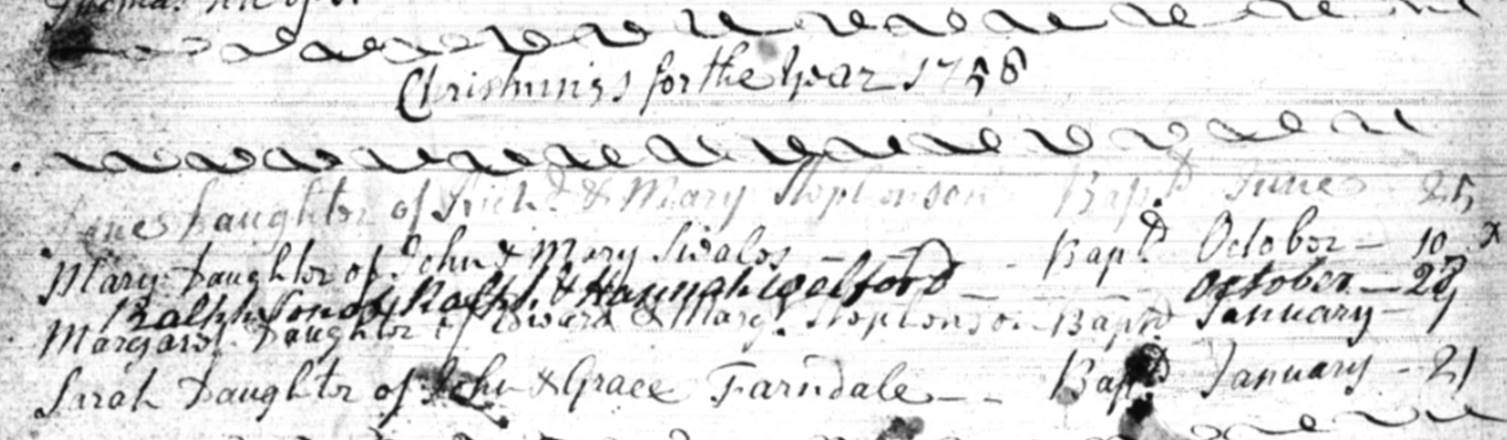 Christnings for the Year 1758
Jane Daughter of Richd. & Mary Stephenson Bapd June 25
Mary Daughter of John & Mary Swales - - Bapd. October - 10 x
Ralph Son of Ralph & Hannah Welford - October - 28
Margaret Daughter of Edward & Mary Stephenson Bapd January - 9
Sarah Daughter of John & Grace Farndale - - Bapd January - 21